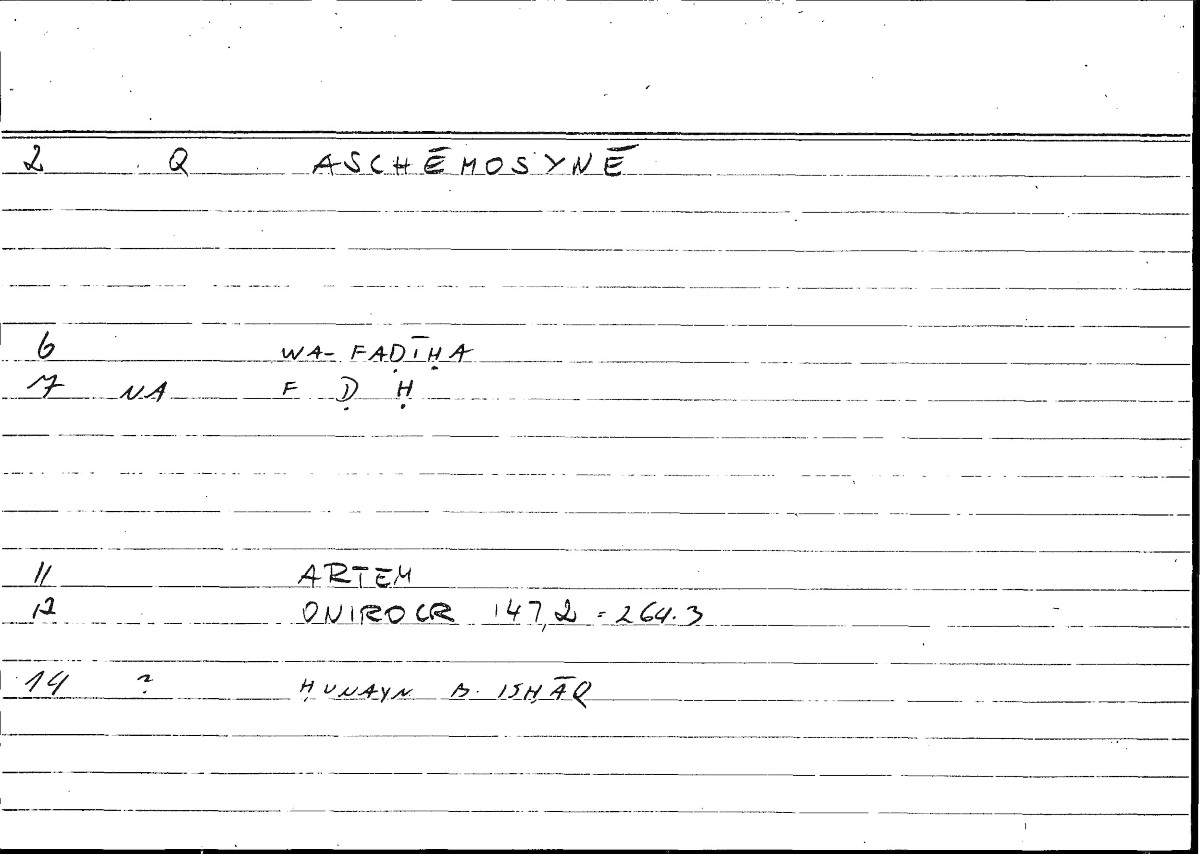 2 Q ASCHĒMOSYNĒ
6 WA- FAḌĪḤA
7 NA F Ḍ Ḥ
11 ARTEM
12 ONIROCR 147,2 = 264.3
14 ? ḤUNAYN B. ISḤĀQ